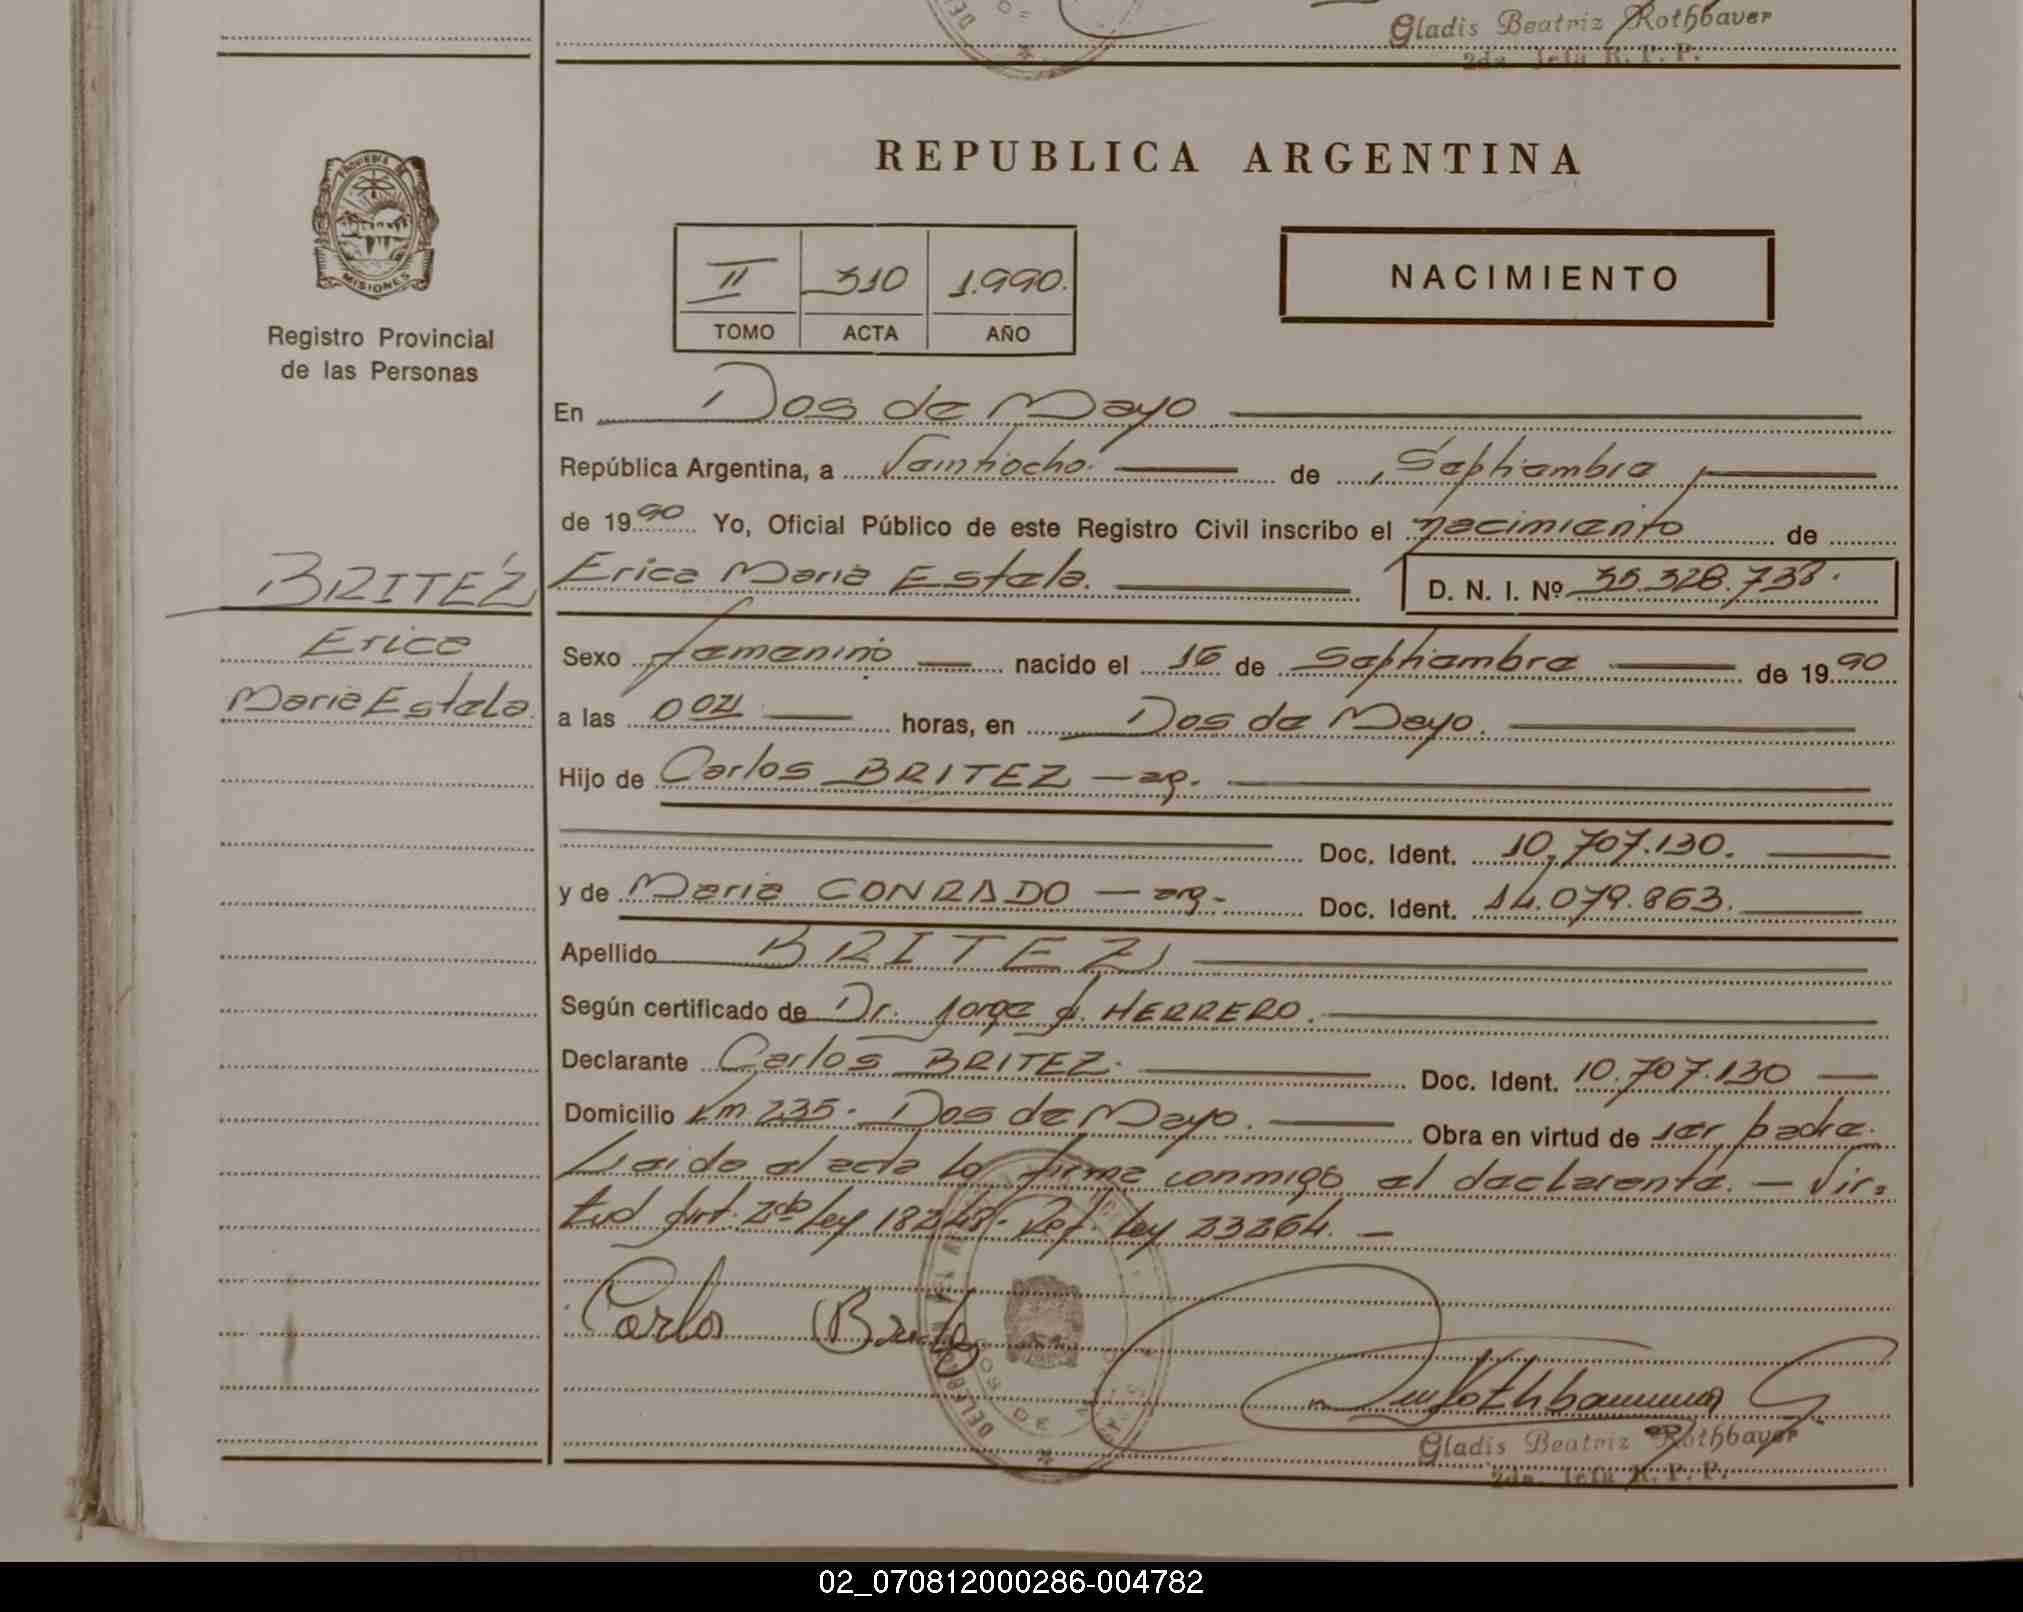 Gladis Beatriz Rothbauer
2da. Jefa R. P. P.
REPUBLICA ARGENTINA
PROVINCIA DE
MISIONES
Registro Provincial
de las Personas
II 310 1.990.
TOMO ACTA AÑO
NACIMIENTO
En Dos de Mayo
República Argentina, a Veintiocho. de Septiembre
de 1990 Yo, Oficial Público de este Registro Civil inscribo el nacimiento de
BRITEZ
Erica Maria Estela. D. N. I. Nº 35.328.738.
Erica
Maria Estela.
Sexo femenino nacido el 16 de Septiembre de 1990
a las 0 04 horas, en Dos de Mayo.
Hijo de Carlos BRITEZ — arg.
Doc. Ident. 10.707.130.
y de Maria CONRADO — arg. Doc. Ident. 14.079.863.
Apellido BRITEZ
Según certificado de Dr. Jorge A. HERRERO.
Declarante Carlos BRITEZ. Doc. Ident. 10.707.130
Domicilio Km 235. Dos de Mayo. Obra en virtud de ser padre.
Leida el acta la firma conmigo el declarante. — Vir-
tud Art. 2do Ley 18248. Ref. Ley 23264. —
Carlos Britez
Gladis Beatriz Rothbauer
2da. Jefa R. P. P.
02_070812000286-004782